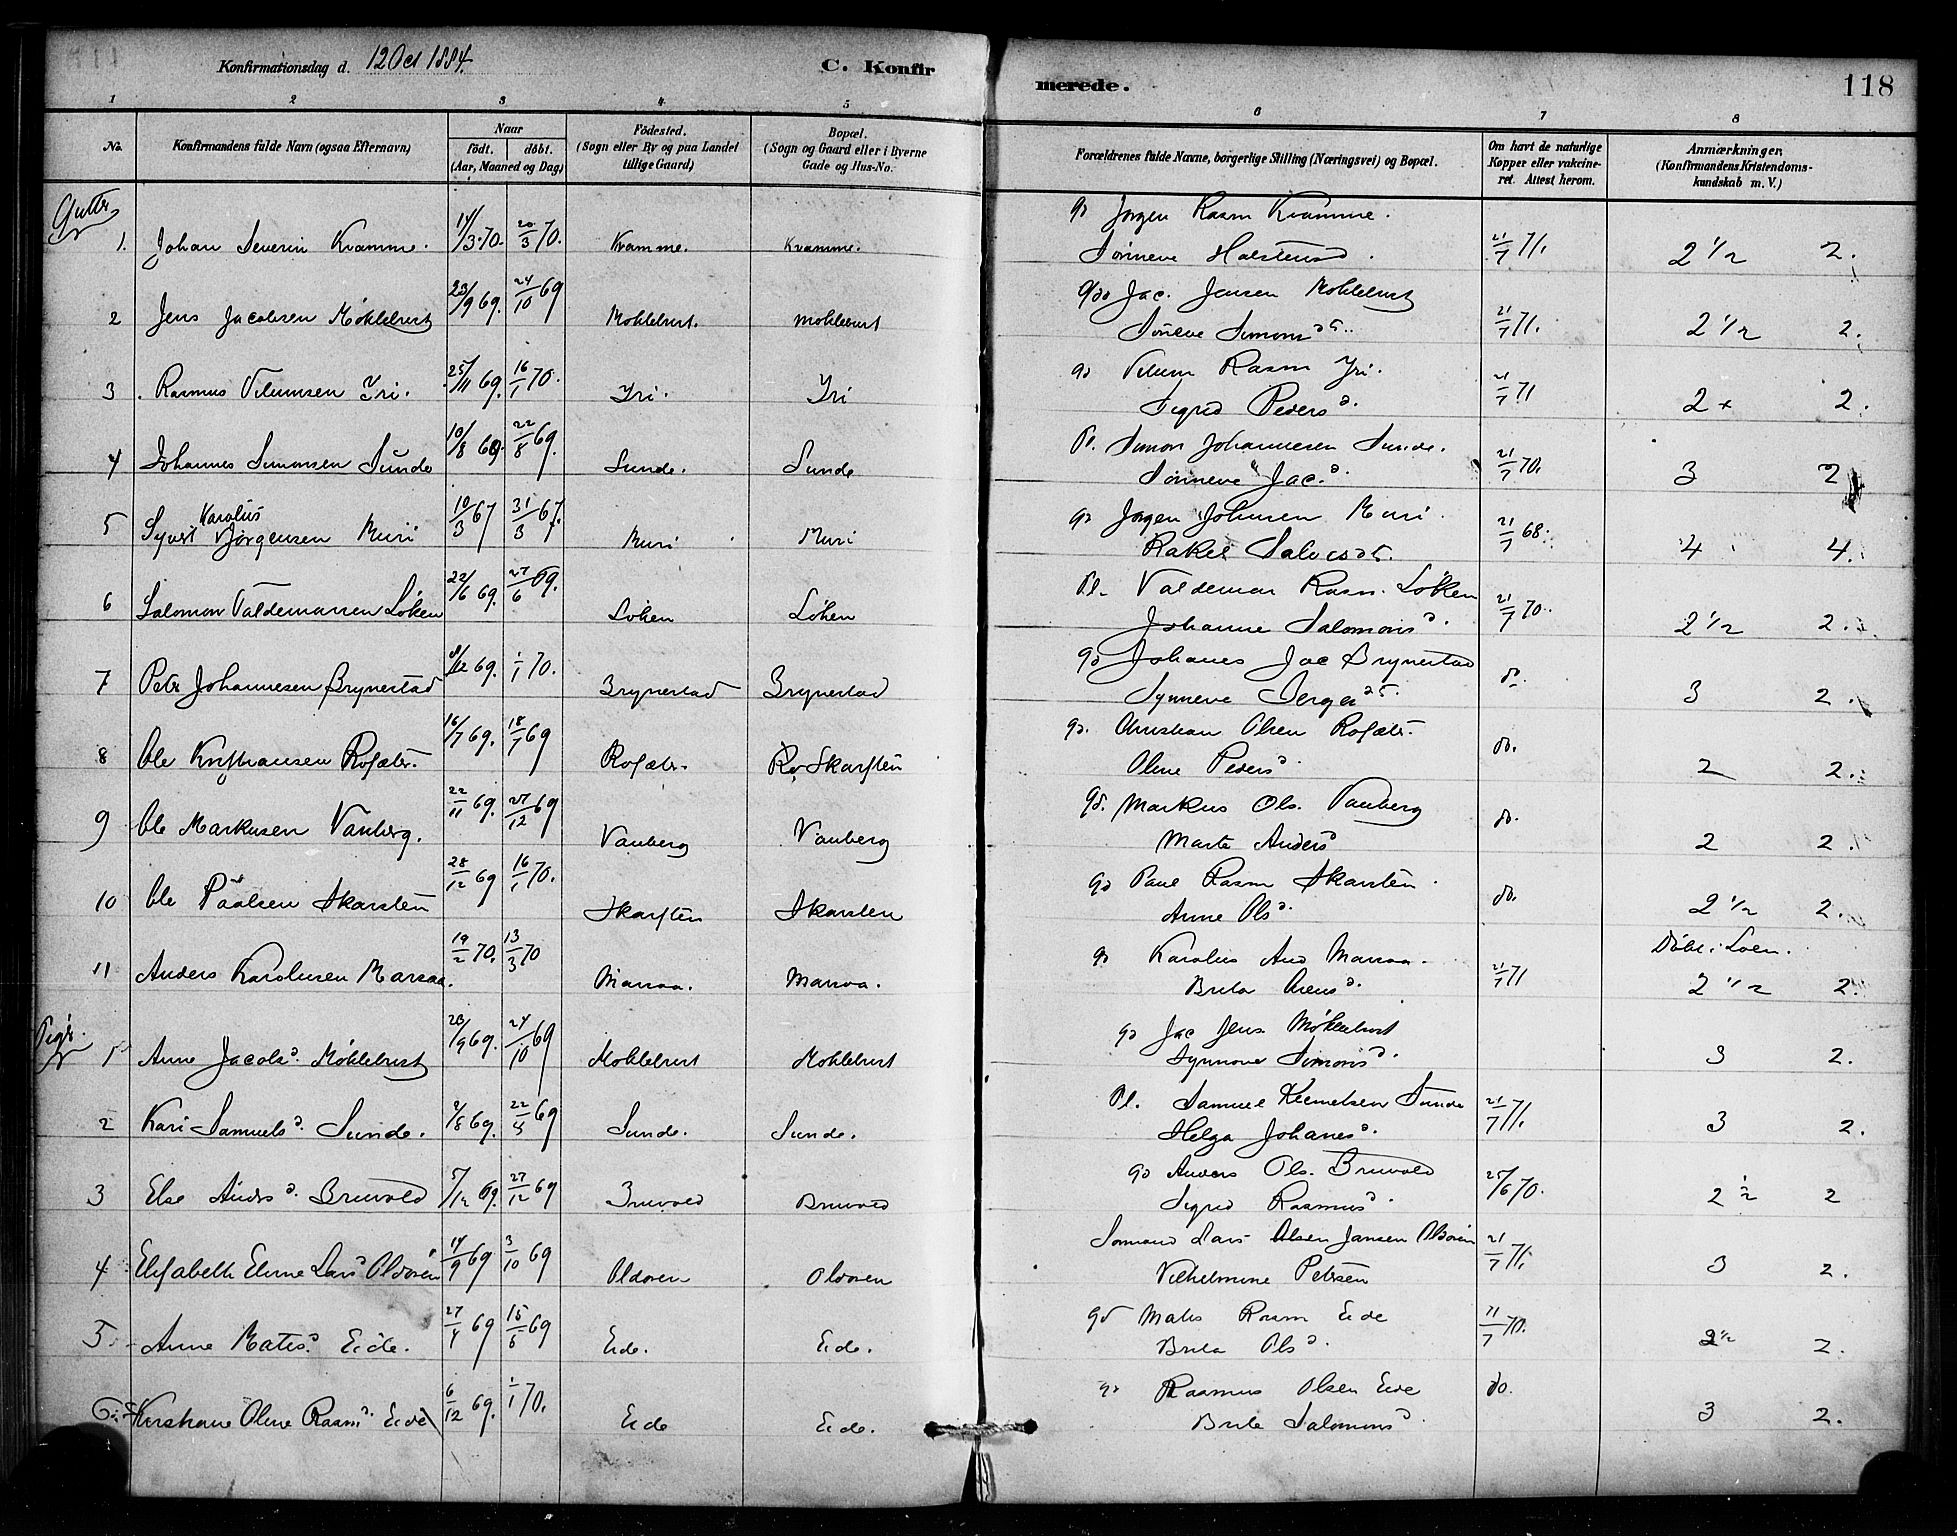 Konfirmationsdag d. 12 Oct 1884. C. Konfir merede. 118
1 2 3 4 5 6 7 8
No. Konfirmandens fulde Navn (ogsaa Efternavn) Naar födt. döbt. (Aar, Maaned og Dag) Födested. (Sogn eller By og paa Landet tillige Gaard) Bopæl. (Sogn og Gaard eller i Byerne Gade og Hus-No. Forældrenes fulde Navne, borgerlige Stilling (Næringsvei) og Bopæl. Om havt de naturlige Kopper eller vakcineret. Attest herom. Anmærkninger, (Konfirmandens Kristendomskundskab m. V.)
Gutter
1. Johan Severin Kramme. 14/3 70. 20/3 70. Kramme. Kramme. gd Jørgen Rasm Kramme.
Sønneve Halstensd. 21/7 71. 2 1/2 2.
2 Jens Jacobsen Möklebust 23/9 69. 24/10 69 Moklebust. Moklebust Jac. Jensen Moklebust
Söneve Simonsd. 21/7 71. 2 1/2 2.
3. Rasmus Vilumsen Yri. 25/11 69. 16/1 70. Yri. Yri gd Vilum Rasm Yri.
Sigrid Pedersd. 21/7 71 2+ 2.
4 Johannes Simonsen Sunde 10/8 69. 22/8 69. Sunde. Sunde Pl. Simon Johannesen Sunde.
Sönneve Jac.d. 21/7 70. 3 2
5 Syvert Karolus Jörgensen Muri 10/3 67 31/3 67. Muri Muri gd Jörgen Johnsen Muri.
Rakel 21/7 68. 4 4.
6 Salomon Valdemarsen Löken 22/6 69. 27/6 69. Löken Löken Pl. Valdemar Rasm. Löken
Johanne Salomonsd. 21/7 70. 2 1/2 2.
7 Peter Johannesen Brynestad /12 69. /1 70. Brynestad Brynestad gd Johanes Jac Brynestad
Synneve do. 3 2.
8 Ole Kristiansen Rosæter. 16/7 69. 18/7 69 Rosæter. Skarsten gd. Christian Olsen Rosæter.
Oline Pedersd. do. 2 2.
9 Ole Markusen Vanberg. 22/11 69. 27/12 69 Vanberg Vanberg gd. Markus Ols. Vanberg
Marte Andersd do. 2 2.
10 Ole Paalsen Skarsten 28/12 69 16/1 70. Skarsten Skarsten gd Paul Rasm Skarsten.
Anne Olsd. do. 2 1/2 2.
11 Anders Karolusen Marsaa. 19/2 70. 13/3 70 Marsaa. Marsaa. gd Karolus And Marsaa.
Brita 21/7 71 Döbt i Loen. 2 1/2 2.
Piger
1 Anne Jacobsd. Möklebust 23/9 69. 24/10 69 Moklebust Moklebust gd Jac Jens Möklebust
Synnove Simonsd. 3 2.
2 Kari Samuelsd. Sunde. /8 69. 22/8 69 Sunde. Sunde. Pl. Samuel Sunde
Helga Johanesd. 21/7 71. 3 2.
3 Else Andersd. Bruvold 5/12 69. 27/12 69 Bruvold Bruvold gd Anders Ols. Bruvold
Sigrid Rasmusd. 25/6 70. 2 1/2 2
4 Elisabeth Elene Larsd Oldören 14/9 69 3/10 69 Oldören Oldören Lars Olsen Jansen Oldören
Vilhelmine Petersen 21/7 71. 3 2.
5. Anne Matisd. Eide. 27/4 69 15/5 69 Eide. Eide. gd Matis Rasm Eide
Brita Olsd. 21/7 70. 2 1/2 2.
6. Kristiane Oline Rasmd. Eide 6/12 69. /1 70. Eide Eide. gd Rasmus Olsen Eide
Brita Salomonsd do. 3 2.